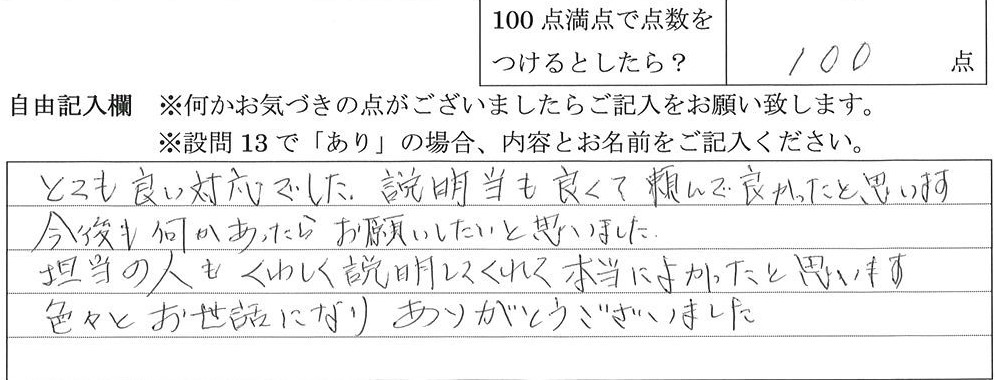 100 点満点で点数を
つけるとしたら？ 100 点
自由記入欄 ※何かお気づきの点がございましたらご記入をお願い致します。
※設問 13 で「あり」の場合、内容とお名前をご記入ください。
とても良い対応でした. 説明当も良くて頼んで良かったと思います
今後も何かあったらお願いしたいと思いました.
担当の人もくわしく説明してくれて本当によかったと思います
色々とお世話になりありがとうございました